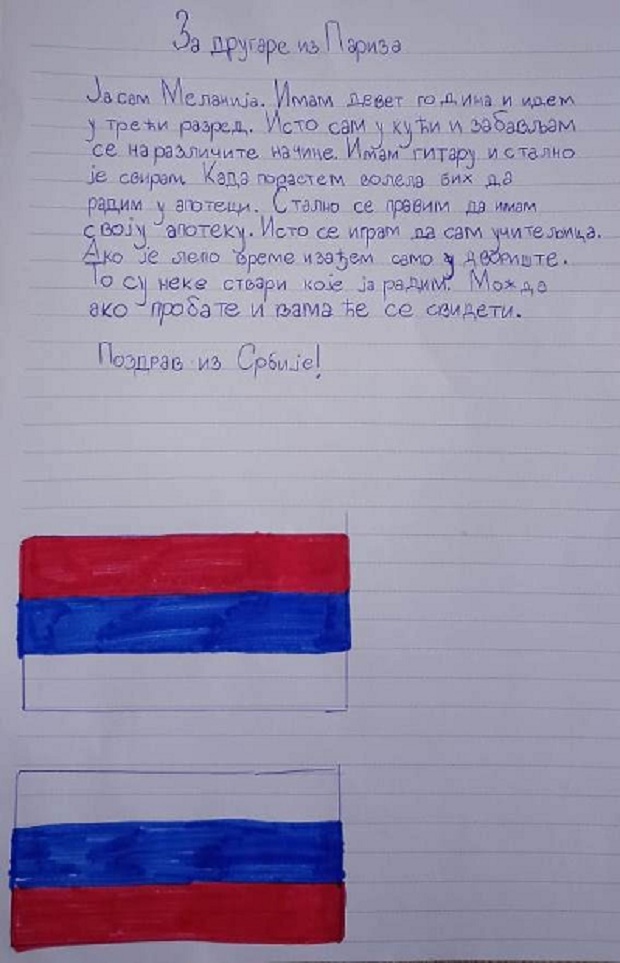 За другаре из Париза
Ја сам Меланија. Имам девет година и идем
у трећи разред. Исто сам у кући и забављам
се на различите начине. Имам гитару и стално
је свирам. Када порастем волела бих да
радим у апотеци. Стално се правим да имам
своју апотеку. Исто се играм да сам учитељица.
Ако је лепо време изађем само у двориште.
То су неке ствари које ја радим. Можда
ако пробате и вама ће се свидети.
Поздрав из Србије!